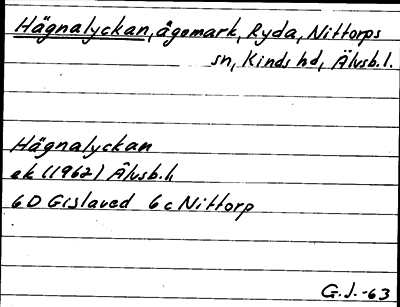 Hägnalyckan, ägomark, Ryda, Nittorps
sn, Kinds hd, Älvsb. l.
Hägnalyckan
ek (1962) Älvsb. l.
6D Gislaved 6c Nittorp
G.J.-63